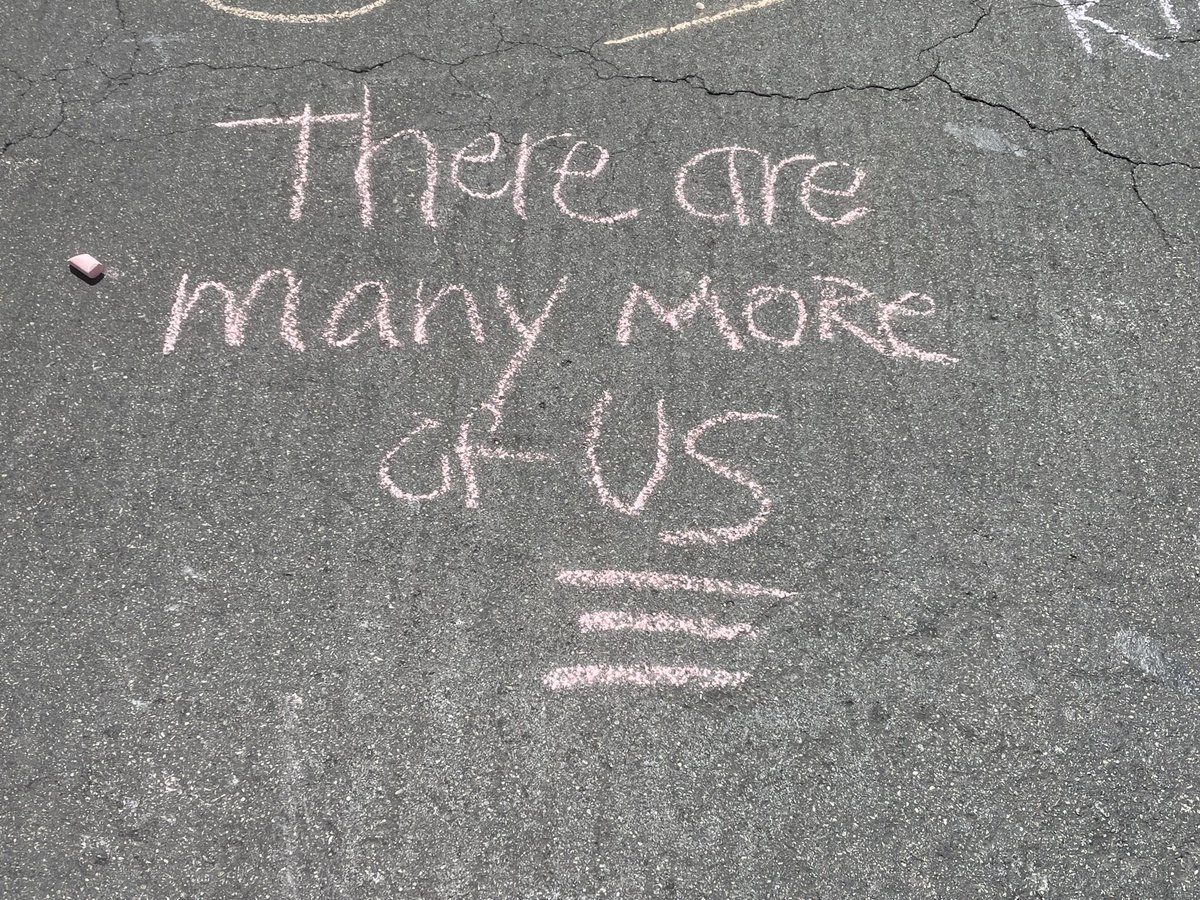 There are
many MORe
of US